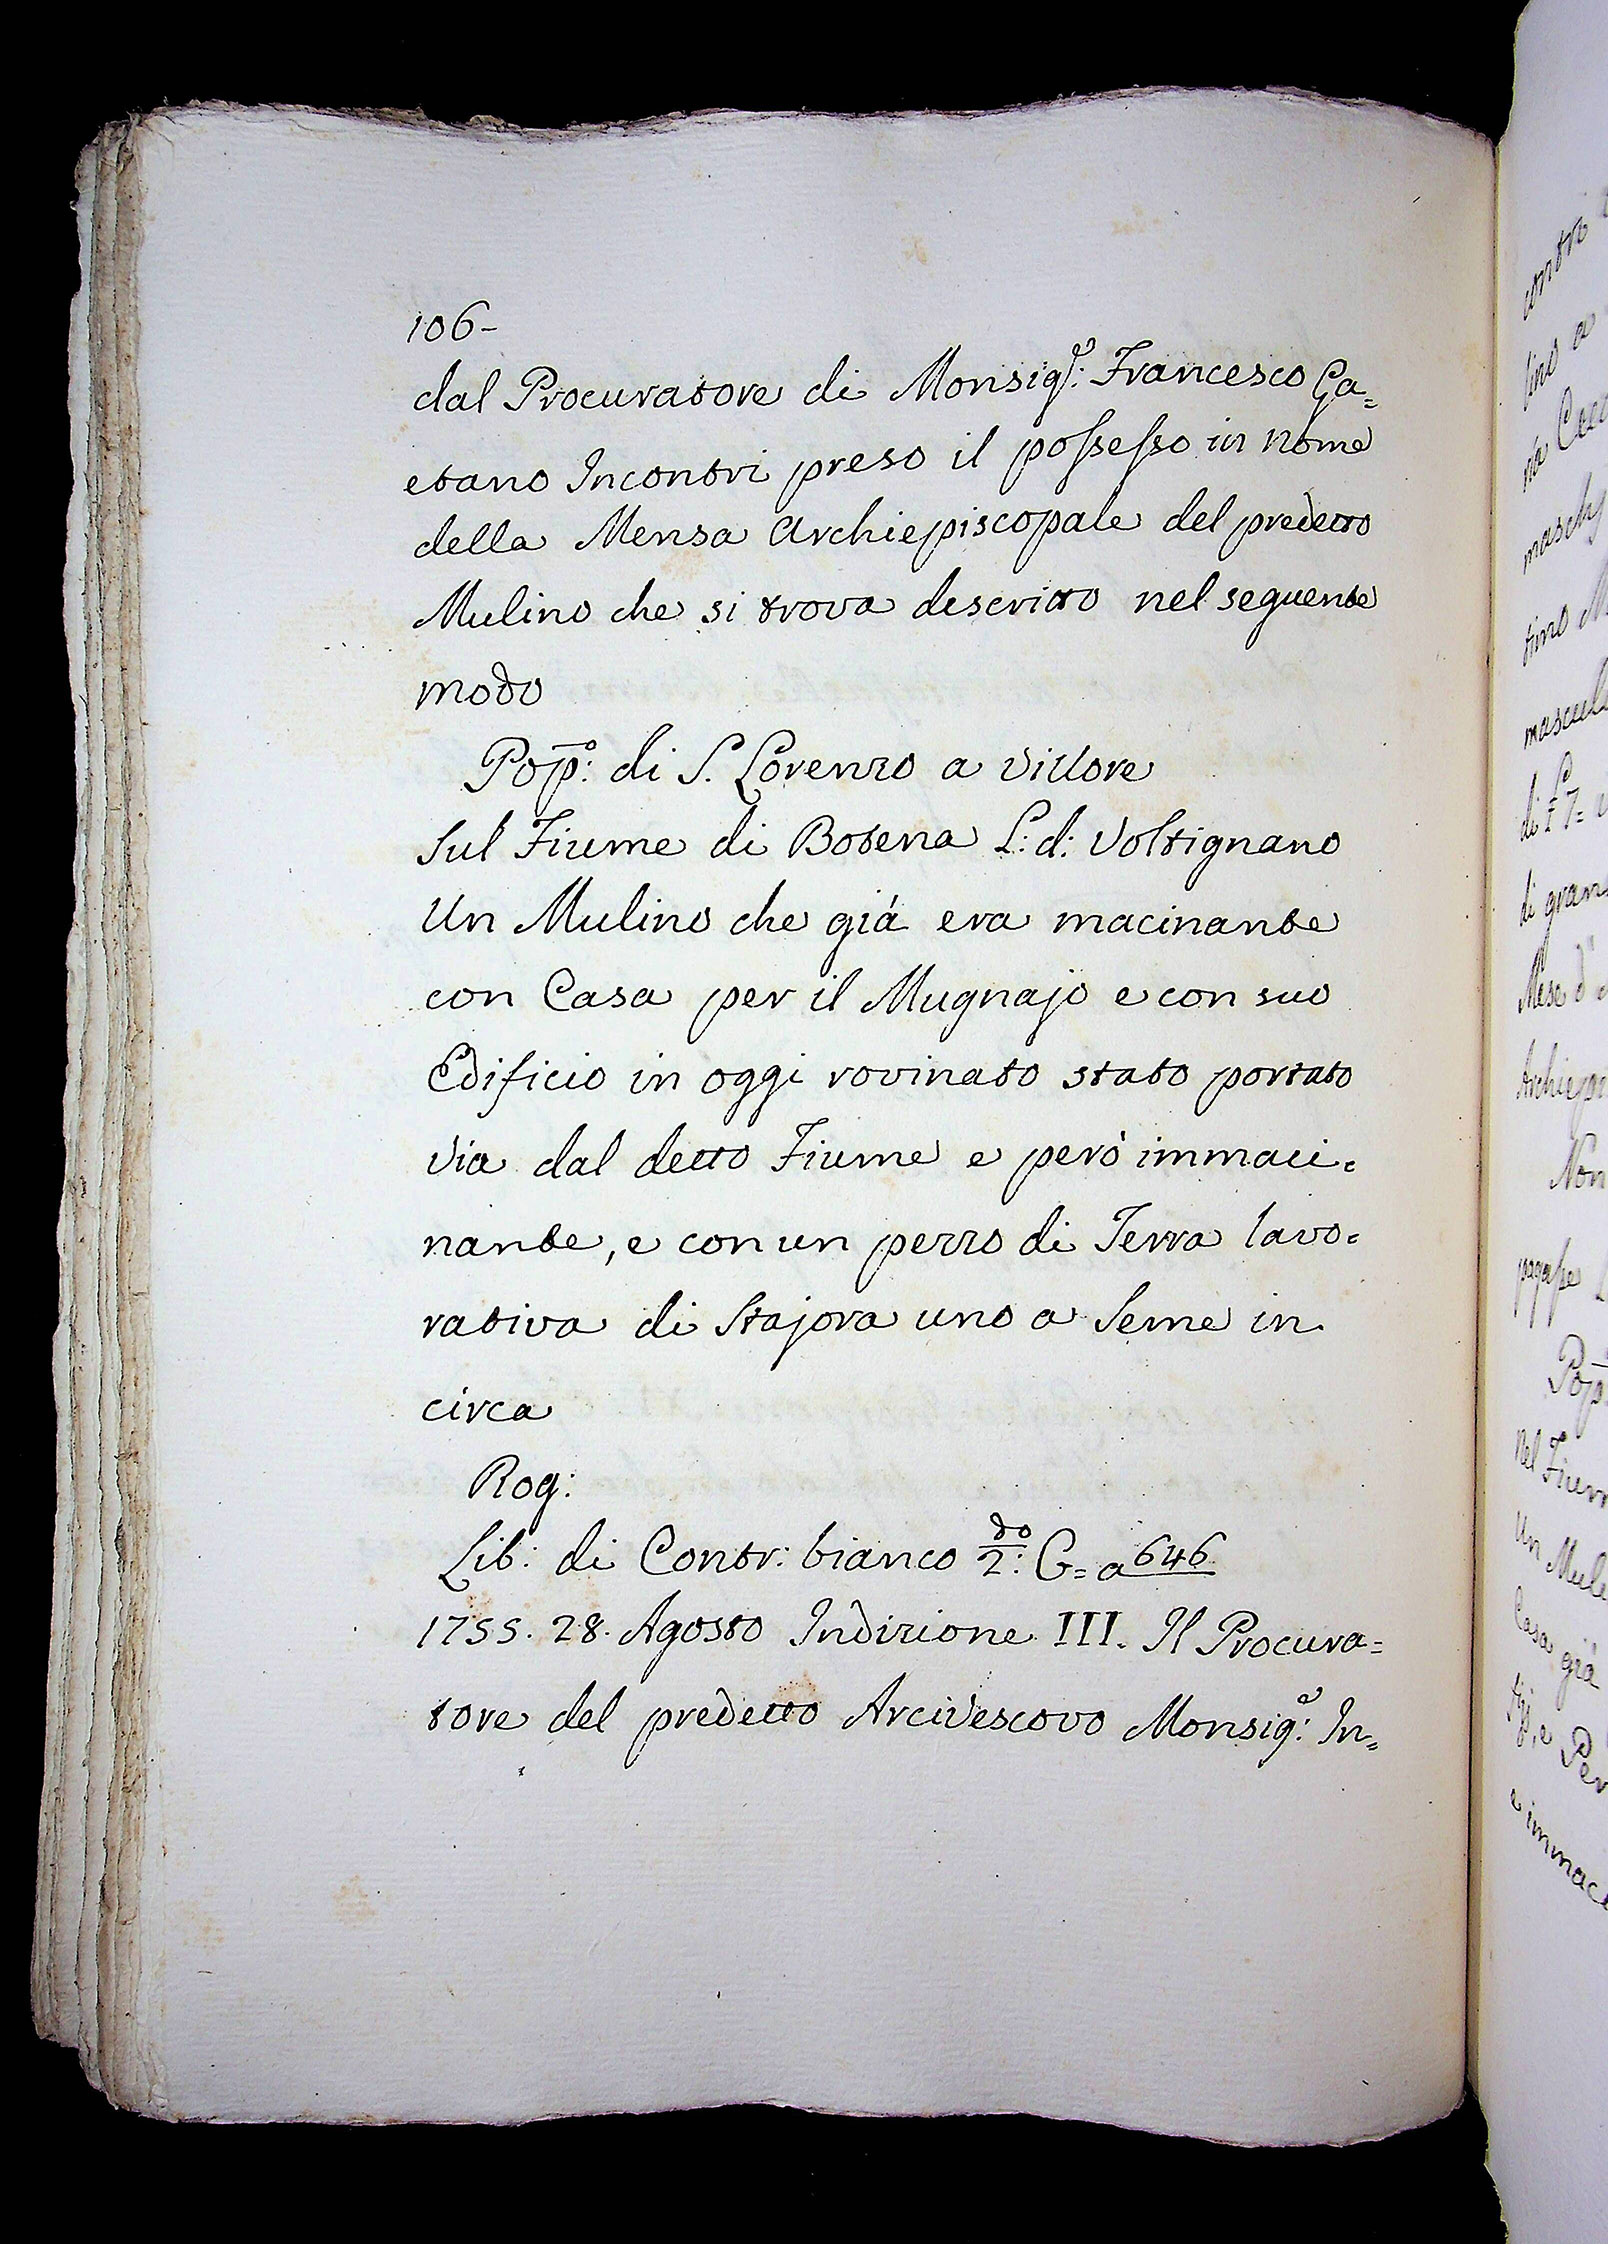 106-
dal Procuratore di Monsig.e: Francesco Ga=
etano Incontri preso il possesso in nome
della Mensa Archiepiscopale del predetto
Mulino che si trova descritto nel seguente
modo
Pop.o: di S. Lorenzo a Villore
Sul Fiume di Botena L: d: Voltignano
Un Mulino che giá era macinante
con Casa per il Mugnajo e con suo
Edificio in oggi rovinato stato portato
via dal detto Fiume e peró immaci=
nante, e con un pezzo di Terra lavo=
rativa di Stajora uno a Seme in
circa
Rog:
Lib: di Contr: bianco 2.do: C= a 646
1755. 28. Agosto Indizione III. Il Procura=
tore del predetto Arcivescovo Monsig.e: In=
contri
lino a
na
masch
tino M
mascul
di
di gran
Mese d'
Archiepi
Non
pagasse
Pop
Nel Fium
Un Muli
Casa giá
e Per
e immaci